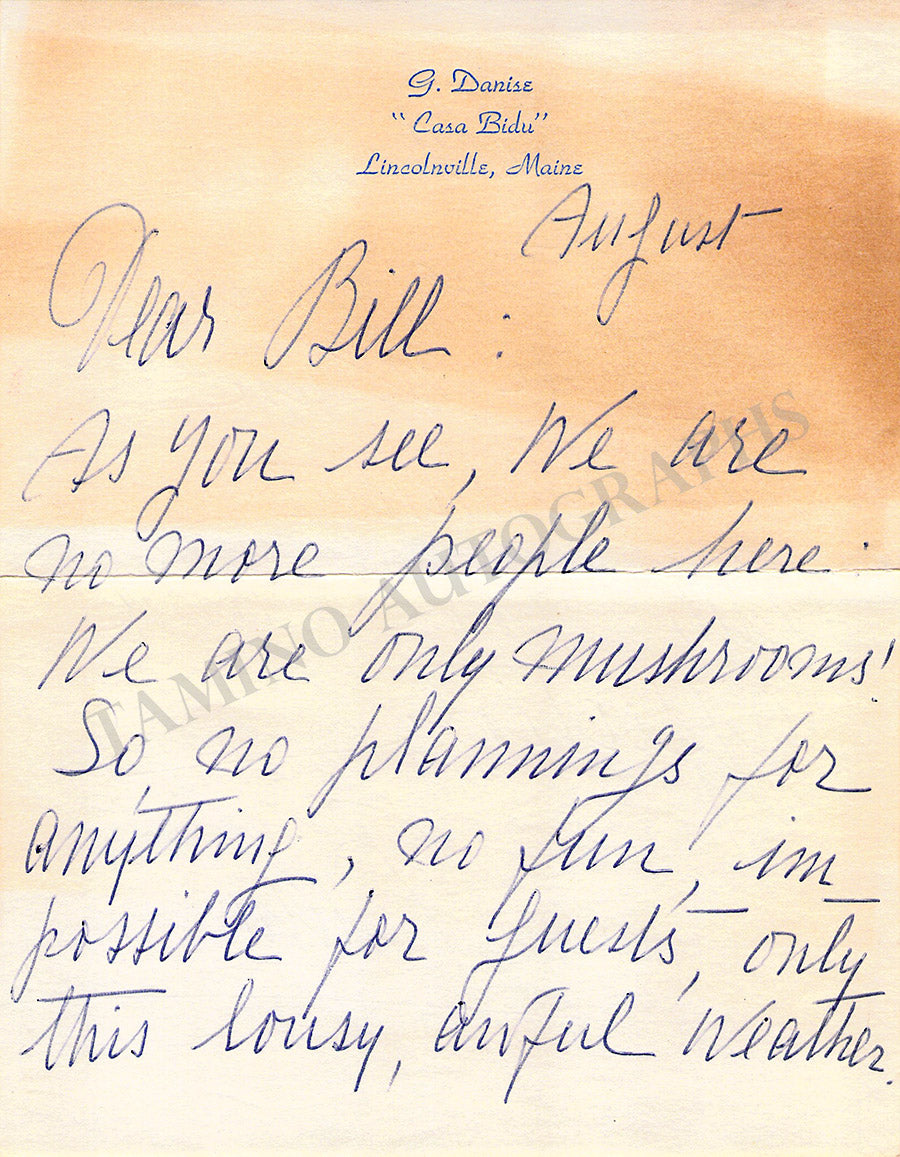 G. Danise
"Casa Bidu"
Lincolnville, Maine
August
Dear Bill :
As you see, We are
no more people here.
We are only mushrooms!
So, no plannings for
anything, no fun, im-
possible for guests, only
this lousy, awful Weather.
TAMINO AUTOGRAPHS